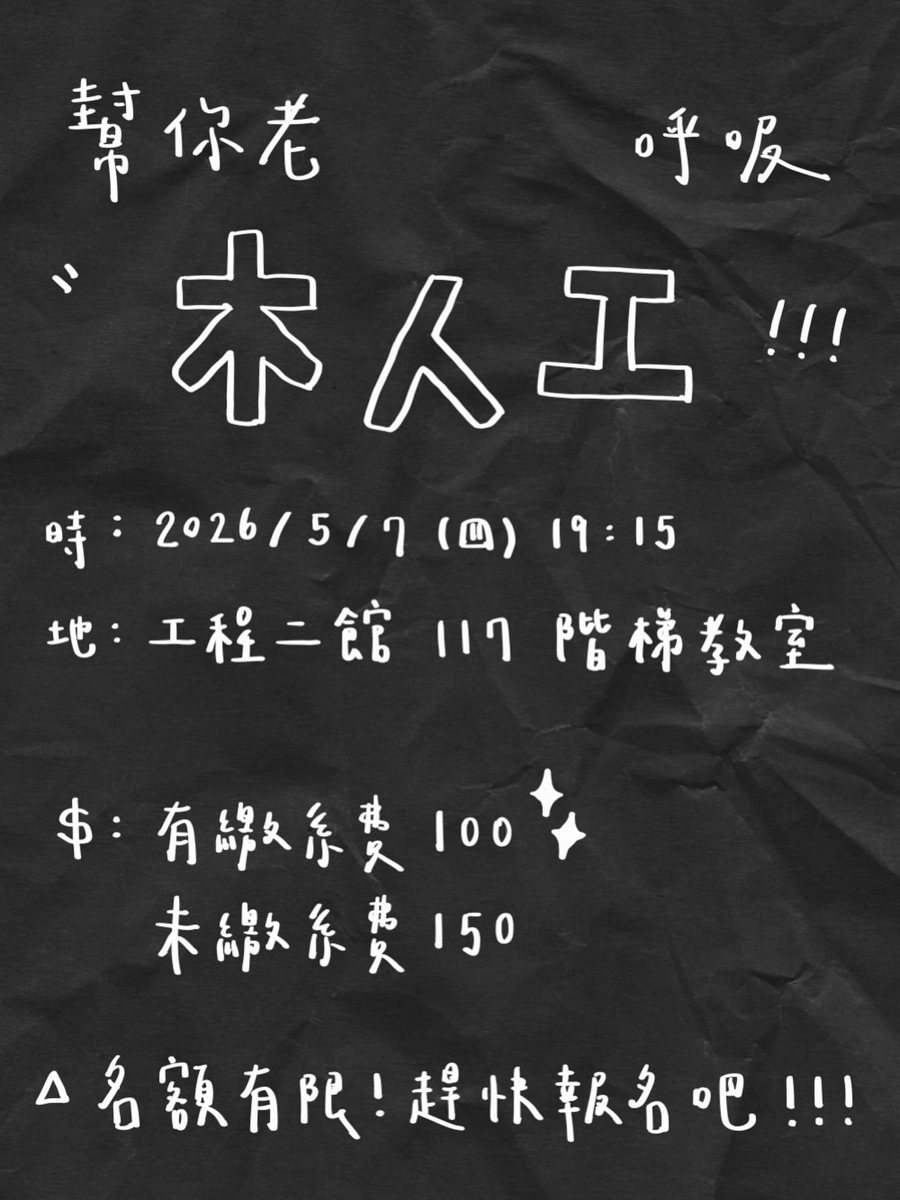 幫你老 呼吸
〝木人工!!!
時:2026/5/7(四)19:15
地:工程二館 117 階梯教室
$:有繳系費 100
未繳系費 150
△名額有限!趕快報名吧!!!